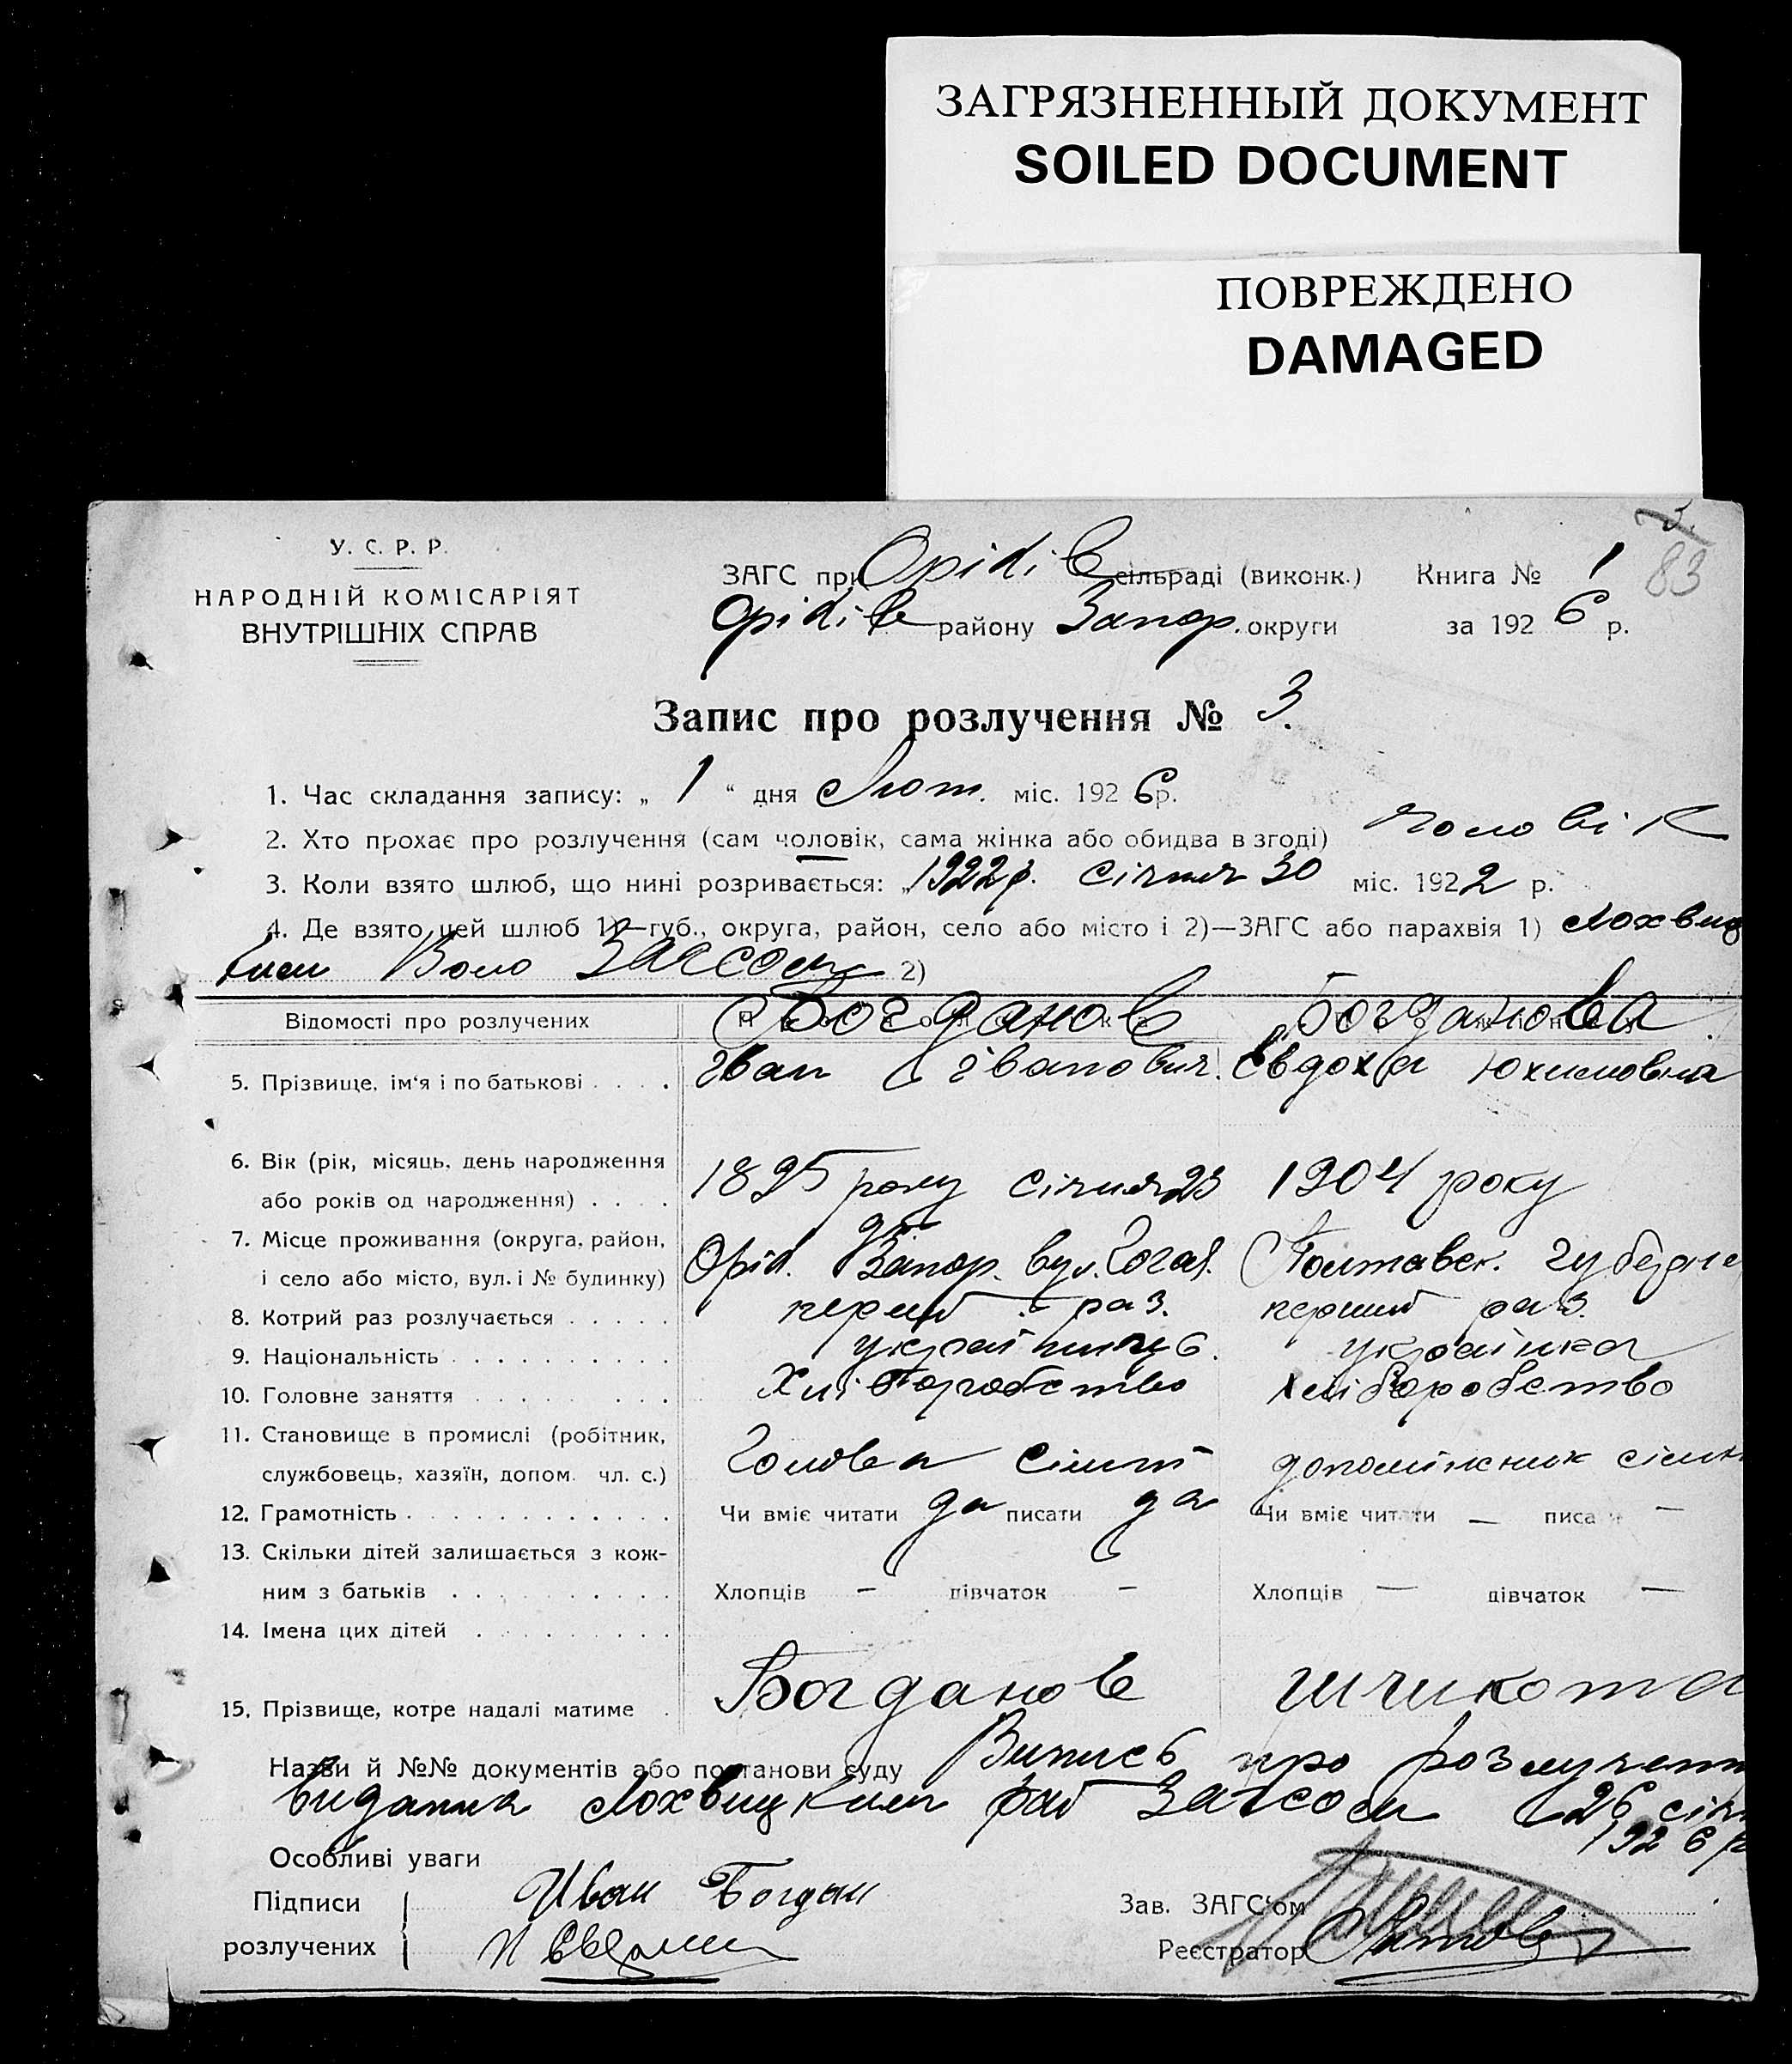 ЗАГРЯЗНЕННЫЙ ДОКУМЕНТ
SOILED DOCUMENT
ПОВРЕЖДЕНО
DAMAGED
У. С. Р. Р.
НАРОДНІЙ КОМІСАРІЯТ
ВНУТРІШНІХ СПРАВ
83
ЗАГС при Оріхів сільраді (виконк.) Книга № 1
Оріхів району Запор. округи за 1926 р.
Запис про розлучення № 3.
1. Час складання запису: „ 1 “ дня Лют. міс. 1926 р.
2. Хто прохає про розлучення (сам чоловік, сама жінка або обидва в згоді) Чоловік
3. Коли взято шлюб, що нині розривається: „1922 р. Січня 30 міс. 1922 р.
4. Де взято цей шлюб 1)—губ., округа, район, село або місто і 2)—ЗАГС або парахвія 1) Лохвиц
ким Воло ЗАГСОм 2)
Відомості про розлучених Богданов Богданова
5. Прізвище, ім‘я і по батькові . . . . Іван Іванович. Євдоха Юхимовна
6. Вік (рік, місяць, день народження
або років од народження) . . . . 1895 року січня 23 1904 року
7. Місце проживання (округа, район,
і село або місто, вул. і № будинку) Оріх. Запор. вул. Гогол. Полтавск. губерне
8. Котрий раз розлучається . . . . . перший раз. перший раз.
9. Національність . . . . . . . . . . українець. українка
10. Головне заняття . . . . . . . . . Хліборобство хліборобство
11. Становище в промислі (робітник,
службовець, хазяїн, допом. чл. с.) Голова сімї допоміжник сімї
12. Грамотність . . . . . . . . . . . . Чи вміє читати да писати да Чи вміє читати — писати —
13. Скільки дітей залишається з кож-
ним з батьків . . . . . . . . . . Хлопців — дівчаток — Хлопців — дівчаток —
14. Імена цих дітей . . . . . . . . .
15. Прізвище, котре надалі матиме . Богданов
Назви й №№ документів або постанови суду Випись про розлученн
видана Лохвицким рай Загсом 26 січ
1926 р
Особливі уваги
Підписи Иван Богдан Зав. ЗАГС‘ом
розлучених Реєстратор